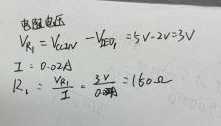 电阻电压
V_{R1} = V_{CCIN} - V_{LED1} = 5V-2V=3V
I = 0.02A
R_1 = \frac{V_{R1}}{I} = \frac{3V}{0.02A} = 150Ω